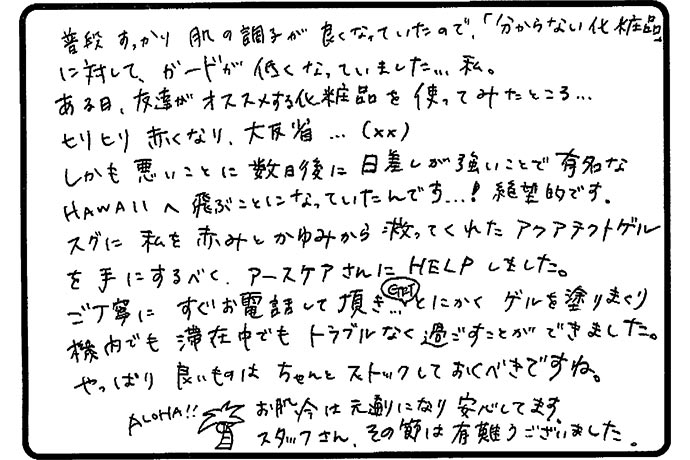 普段 すっかり 肌の調子が 良くなっていたので、「分からない化粧品」
に対して、ガードが 低くなっていました… 私。
ある日、友達が オススメする化粧品を 使ってみたところ…
ヒリヒリ 赤くなり、大反省 … (××)
しかも 悪いことに 数日後に 日差しが強いことで 有名な
HAWAIIへ 飛ぶことになっていたんです…! 絶望的です。
スグに 私を 赤みとかゆみから 救ってくれた アクアテクトゲル
を 手にするべく、アースケアさんに HELP しました。
ご丁寧に すぐお電話して 頂き… GET とにかく ゲルを塗りまくり
機内でも 滞在中でも トラブルなく 過ごすことが できました。
やっぱり 良いものは ちゃんと ストックして おくべきですね。
ALOHA!! お肌 今は 元通りになり 安心してます。
スタッフさん、その節は 有難うございました。